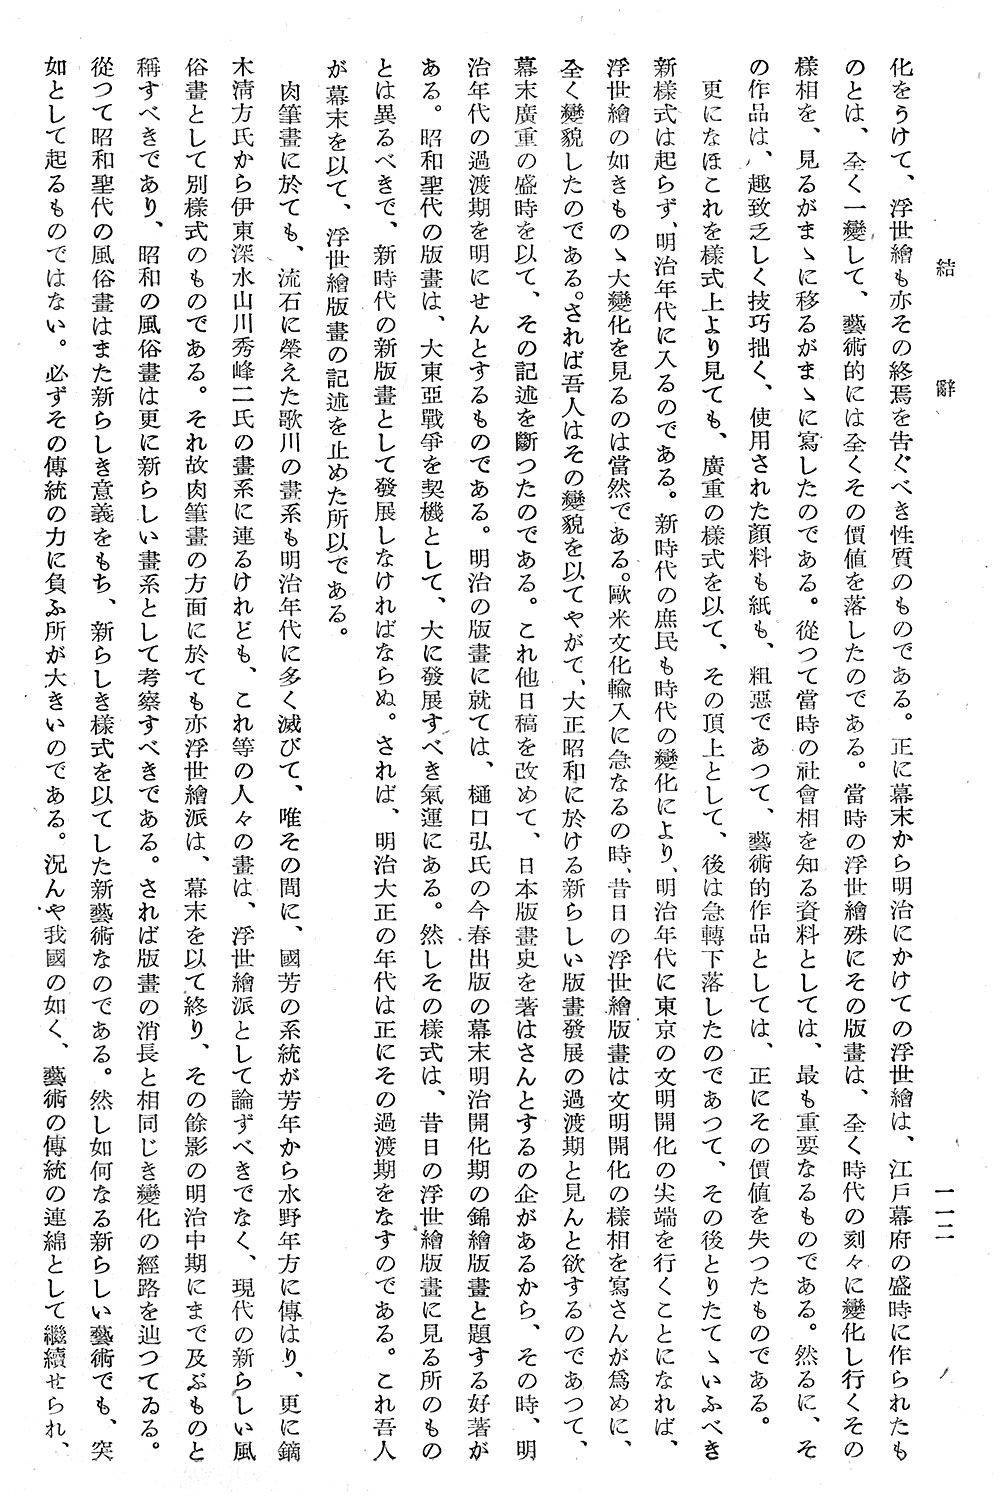 結辭
一一二
化をうけて、浮世繪も亦その終焉を告ぐべき性質のものである。正に幕末から明治にかけての浮世繪は、江戶幕府の盛時に作られたも
のとは、全く一變して、藝術的には全くその價値を落したのである。當時の浮世繪殊にその版畫は、全く時代の刻々に變化し行くその
樣相を、見るがまゝに移るがまゝに寫したのである。從つて當時の社會相を知る資料としては、最も重要なるものである。然るに、そ
の作品は、趣致乏しく技巧拙く、使用された顏料も紙も、粗惡であつて、藝術的作品としては、正にその價値を失つたものである。
更になほこれを樣式上より見ても、廣重の樣式を以て、その頂上として、後は急轉下落したのであつて、その後とりたてゝいふべき
新樣式は起らず、明治年代に入るのである。新時代の庶民も時代の變化により、明治年代に東京の文明開化の尖端を行くことになれば、
浮世繪の如きものゝ大變化を見るのは當然である。歐米文化輸入に急なるの時、昔日の浮世繪版畫は文明開化の樣相を寫さんが爲めに、
全く變貌したのである。されば吾人はその變貌を以てやがて、大正昭和に於ける新らしい版畫發展の過渡期と見んと欲するのであつて、
幕末廣重の盛時を以て、その記述を斷つたのである。これ他日稿を改めて、日本版畫史を著はさんとするの企があるから、その時、明
治年代の過渡期を明にせんとするものである。明治の版畫に就ては、樋口弘氏の今春出版の幕末明治開化期の錦繪版畫と題する好著が
ある。昭和聖代の版畫は、大東亞戰爭を契機として、大に發展すべき氣運にある。然しその樣式は、昔日の浮世繪版畫に見る所のもの
とは異るべきで、新時代の新版畫として發展しなければならぬ。されば、明治大正の年代は正にその過渡期をなすのである。これ吾人
が幕末を以て、浮世繪版畫の記述を止めた所以である。
肉筆畫に於ても、流石に榮えた歌川の畫系も明治年代に多く滅びて、唯その間に、國芳の系統が芳年から水野年方に傳はり、更に鏑
木淸方氏から伊東深水山川秀峰二氏の畫系に連るけれども、これ等の人々の畫は、浮世繪派として論ずべきでなく、現代の新らしい風
俗畫として別樣式のものである。それ故肉筆畫の方面に於ても亦浮世繪派は、幕末を以て終り、その餘影の明治中期にまで及ぶものと
稱すべきであり、昭和の風俗畫は更に新らしい畫系として考察すべきである。されば版畫の消長と相同じき變化の經路を辿つてゐる。
從つて昭和聖代の風俗畫はまた新らしき意義をもち、新らしき樣式を以てした新藝術なのである。然し如何なる新らしい藝術でも、突
如として起るものではない。必ずその傳統の力に負ふ所が大きいのである。況んや我國の如く、藝術の傳統の連綿として繼續せられ、